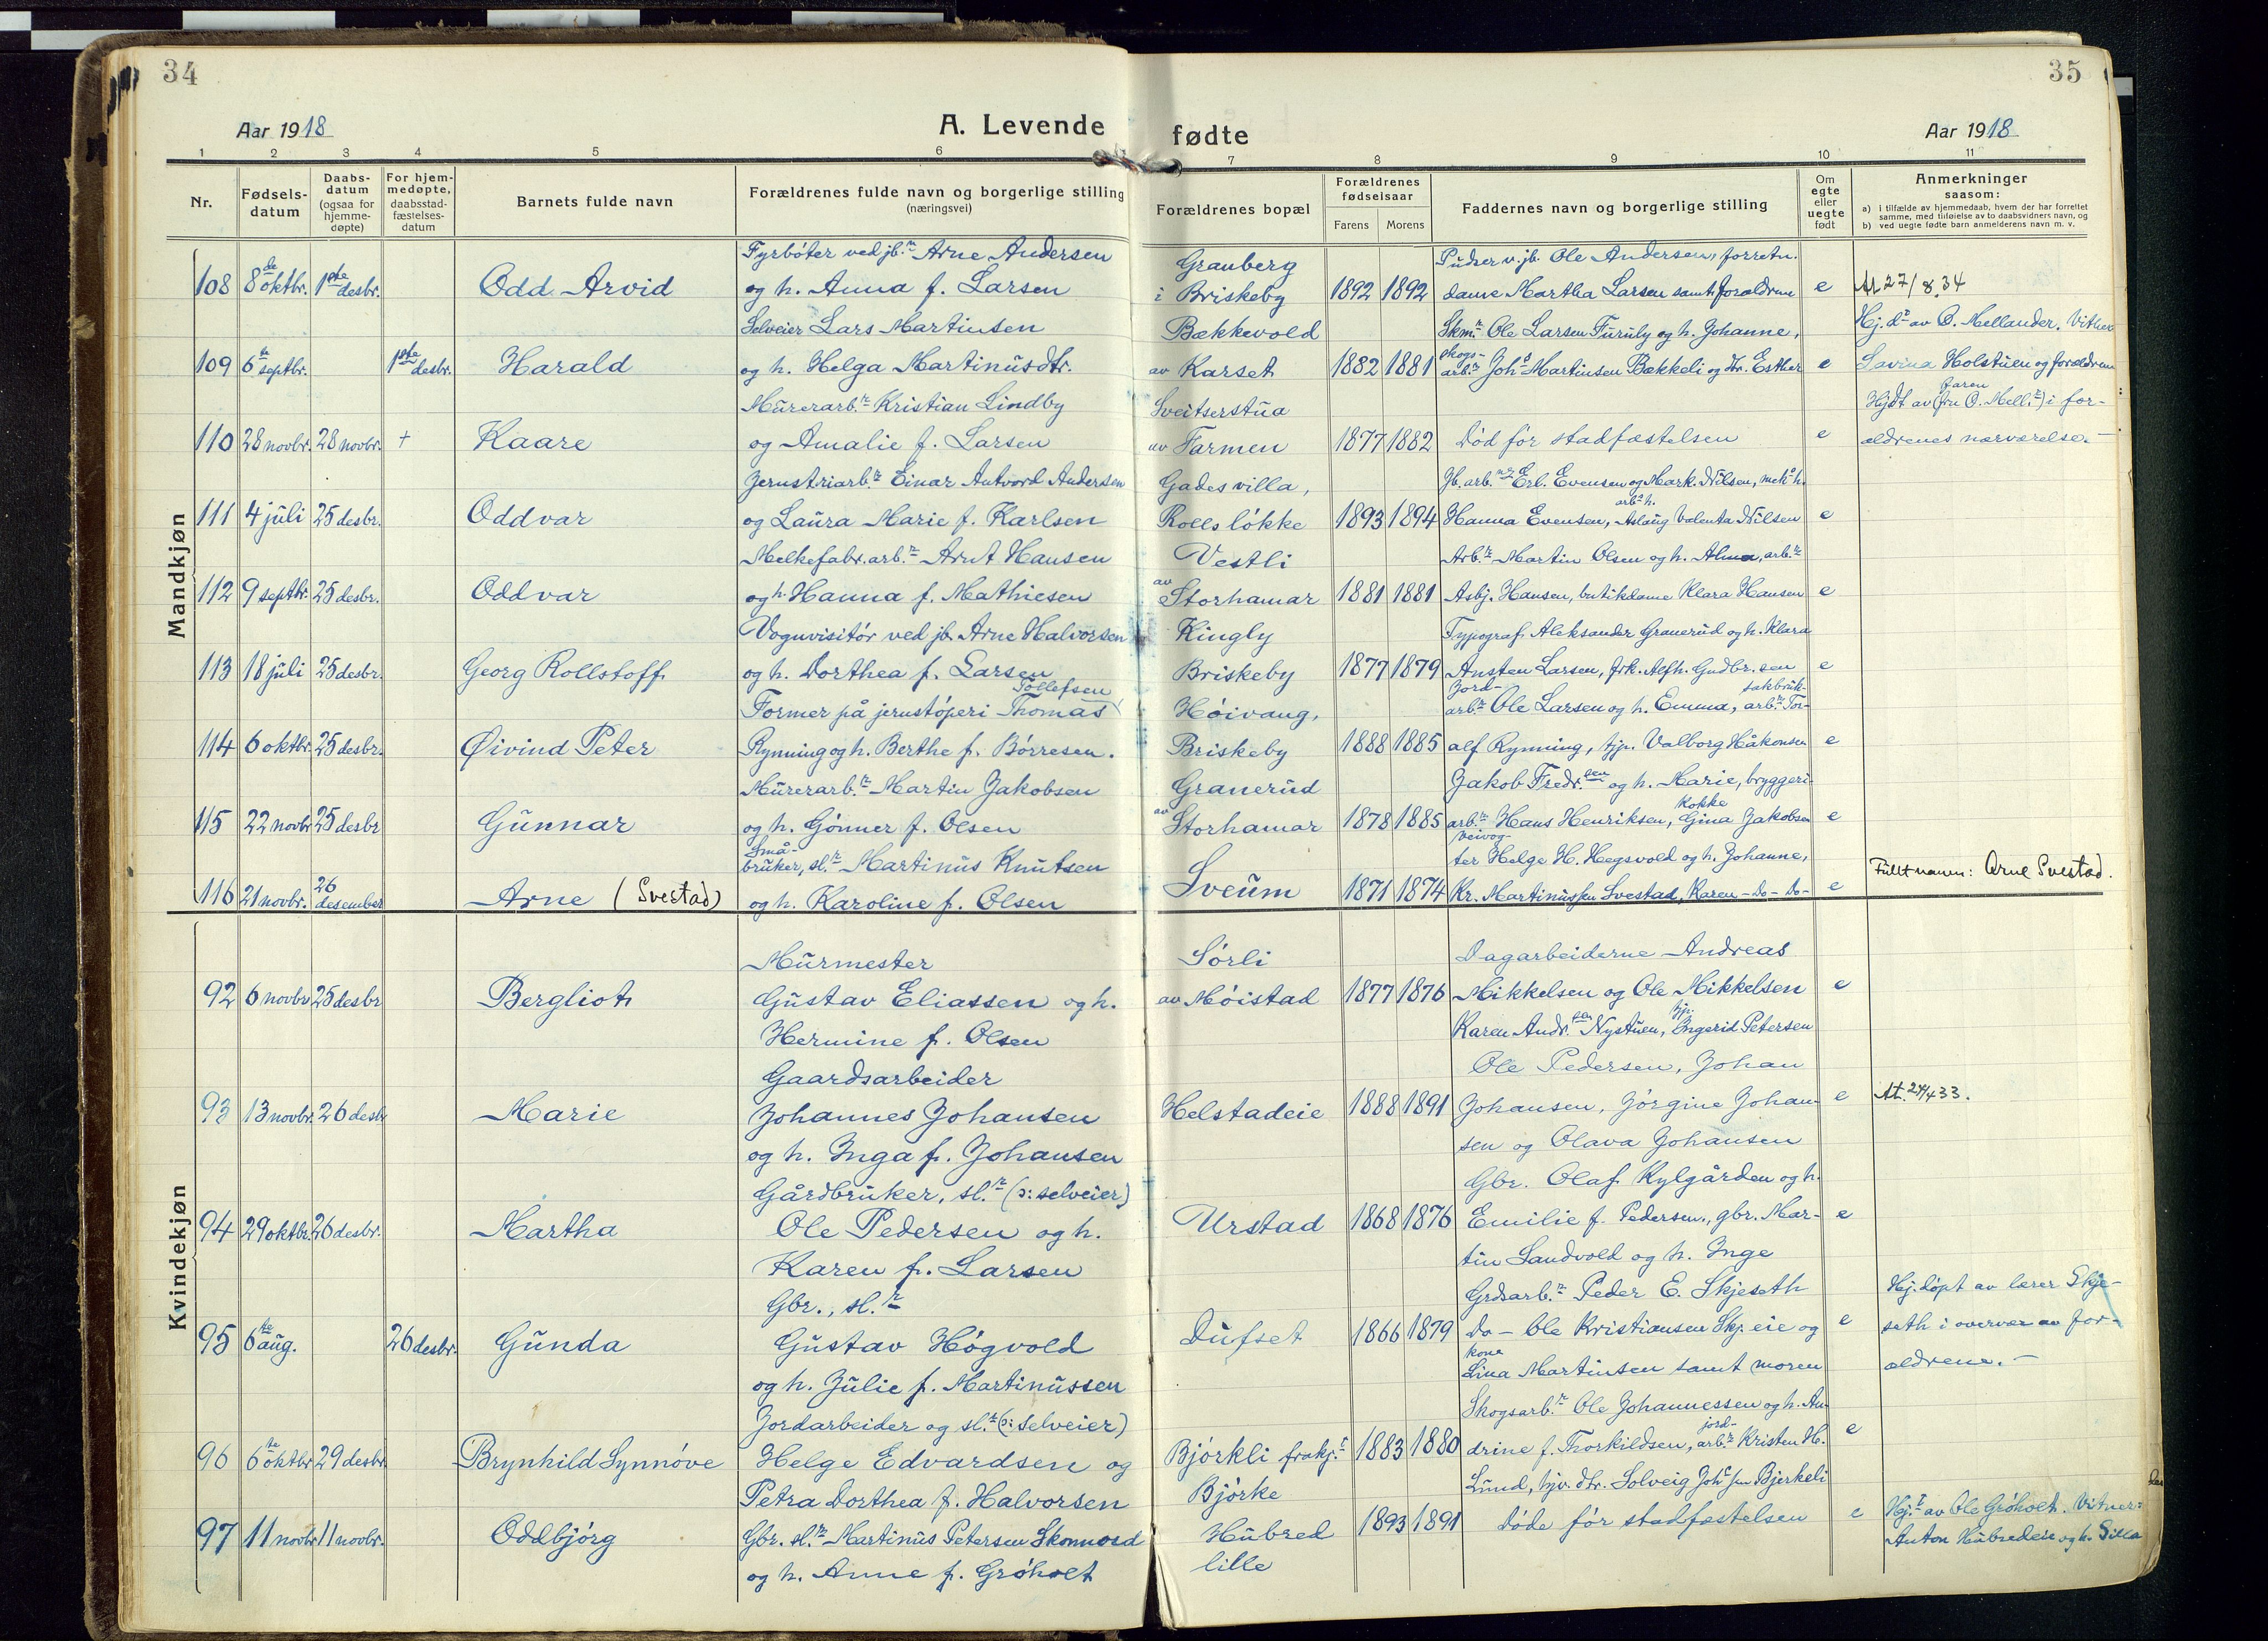 34
35
Aar 1918
A. Levende fødte
Aar 1918
1 2 3 4 5 6 7 8 9 10 11
Nr.
Fødsels-
datum
Daabs-
datum
(ogsaa for
hjemme-
døpte)
For hjem-
medøpte,
daabsstad-
fæstelses-
datum
Barnets fulde navn
Forældrenes fulde navn og borgerlige stilling
(næringsvei)
Forældrenes bopæl
Forældrenes
fødselsaar
Farens Morens
Faddernes navn og borgerlige stilling
Om
egte
eller
uegte
født
Anmerkninger
saasom:
a) i tilfælde av hjemmedaab, hvem der har forrettet
samme, med tilføielse av to daabsvidners navn, og
b) ved uegte fødte barn anmelderens navn m. v.
Mandkjøn
Fyrbóter ved jb.n Arne Andersen Grauberg Pudser v. jb. Ole Andersen, forretn.
108 8de oktbr. 1ste desbr. Odd Arvid og h. Anna f. Larsen i Briskeby 1892 1892 dame Martha Larsen samt forældrene e At 27/8.34
Selveier Lars Martinsen Bækkevold Skm.r Ole Larsen Furuly og h. Johanne, Hj. d.t av O. Mellander. Vitner
109 6te septbr. 1ste desbr. Harald og h. Helga Martinusdtr. av Karset 1882 1881 skogs-arb.r Joh.s Martinsen Bækkeli og dtr. Esther e Lovina Holstuen og forældrene
Mürerarb.r Kristian Lindby Sveitserstüa Hjdt av faren (fru O. Mell.r) i for-
110 28 novbr. 28 novbr. + Kaare og Amalie f. Larsen av Farmen 1877 1882 Död för stadfæstelsen e ældrenes nærværelse.-
Jernstriarb.r Einar Antvord Andersen Gades villa, Jb. arb.ne Erl. Evensen og Mark. Nilsen, mek. h.
111 4 jüli 25 desbr. Oddvar og Laüra Marie f. Karlsen Rolls lókke 1893 1894 Hanna Evensen, arb. h. Aslaüg Valenta Nilsen e
Melkefabr. arb.r Arnt Hansen Vestli Arb.r Martin Olsen og h. Alma, arb.r
112 9 septbr. 25 desbr. Oddvar og h. Hanna f. Mathiesen av Storhamar 1881 1881 Asbj. Hansen, butikdame Klara Hansen e
Vognvisitór ved jb. Arne Halvorsen Kingly Typograf Aleksander Granerud og h. Klara
113 18 jüli 25 desbr. Georg Rollstoff og h. Dorthea f. Larsen Briskeby 1877 1879 Ansten Larsen, frk. Alfh. Gudbr.sen e
Former på jernstóperi Thomas Tollefsen Hóivang, Jord-arb.r Ole Larsen og h. Emma, sakbrük-arb.r Tor-
114 6 oktbr. 25 desbr. Øivind Peter Rynning og h. Berthe f. Bórresen. Briskeby 1888 1885 alf Rynning, tjp. Valborg Håkonsen e
Mürerarb.r Martin Jakobsen Granerüd Jakob Fredr.sen og h. Marie, bryggeri-
115 22 novbr 25 desbr Günnar og h. Gónner f. Olsen av Storhamar 1878 1885 arb.r Hans Henriksen, kokke Gina Jakobsen e
Små-brüker, sl.r Martinüs Knütsen Sveüm Veivog-ter Helge H. Hegsvold og h. Johanne,
116 21 novbr. 26 desember Arne (Svestad) og h. Karoline f. Olsen 1871 1874 Kr. Martinüssen Svestad, Karen - Do - Do - e Fullt navn: Arne Svestad.
Kvindekjøn
Mürmester Sórli Dagarbeiderne Andreas
92 6 novbr 25 desbr Bergliot Güstav Eliassen og h. av Móistad 1877 1876 Mikkelsen og Ole Mikkelsen e
Hermine f. Olsen Karen Andr.sen Nystüen, tjp. Ingerid Petersen
Gaardsarbeider Ole Pedersen, Johan
93 13 novbr. 26 desbr Marie Johannes Johansen Helstadeie 1888 1891 Johansen, Jórgine Johan- e At. 24/4 33.
og h. Inga f. Johansen sen og Olava Johansen
Gårdbrüker, sl.r (ɔ: selveier) Gbr. Olaf Kylgården og h.
94 29 oktbr. 26 desbr. Martha Ole Pedersen og h. Urstad 1868 1876 Emilie f. Pedersen, gbr. Mar- e
Karen f. Larsen tin Sandvold og h. Inge
Gbr., sl.r Grdsarb.r Peder E. Skjeseth Hj. dópt av lærer Skje-
95 6te aüg. 26 desbr. Günda Güstav Högvold Düfset 1866 1879 Do - Ole Kristiansen Skj. eie og e seth i overvær av for-
og h. Jülie f. Martinüssen kone Lina Martinsen samt moren ældrene.-
Jordarbeider og sl.r (ɔ: selveier) Skogsarb.r Ole Johannessen og h. An-
96 6te oktbr 29 desbr. Brynhild Synnóve Helge Edvardsen og Bjórkli frakj.t 1883 1880 drine f. Thorkildsen, jord-arb.r Kristen H. e
Petra Dorthea f. Halvorsen Bjórke Lünd, tjv. dtr. Solveig Joh.s sen Bjerkeli
97 11 novbr 11 novbr. Oddbjórg Gbr. sl.r Martinüs Petersen Skonnord Hübred 1893 1891 Döde för stadfæstelsen e Hj.t av Ole Gróholt. Vitner:
og h. Anne f. Gróholt lille Anton Hübredeie og h. Silla